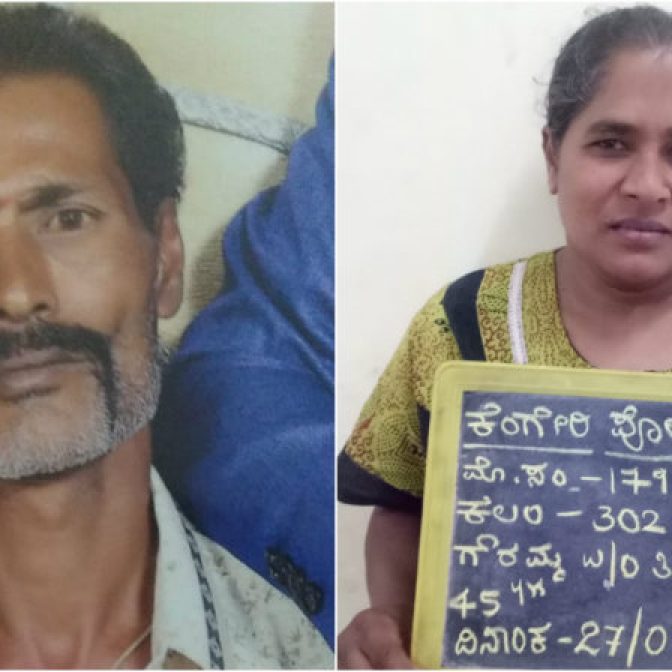 ಕೆಂಗೇರಿ
ಮೊ.ಸಂ -179
ಕಲಂ - 302
ಗೌರಮ್ಮ w/o
45 yrs
ದಿನಾಂಕ -27/0